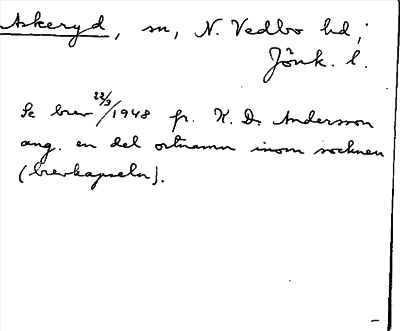 Askeryd, sn, N. Vedbo hd;
Jönk. l.
Se brev 22/3/1948 fr. K. D. Andersson
ang. en del ortnamn inom socknen
(brevkapseln).